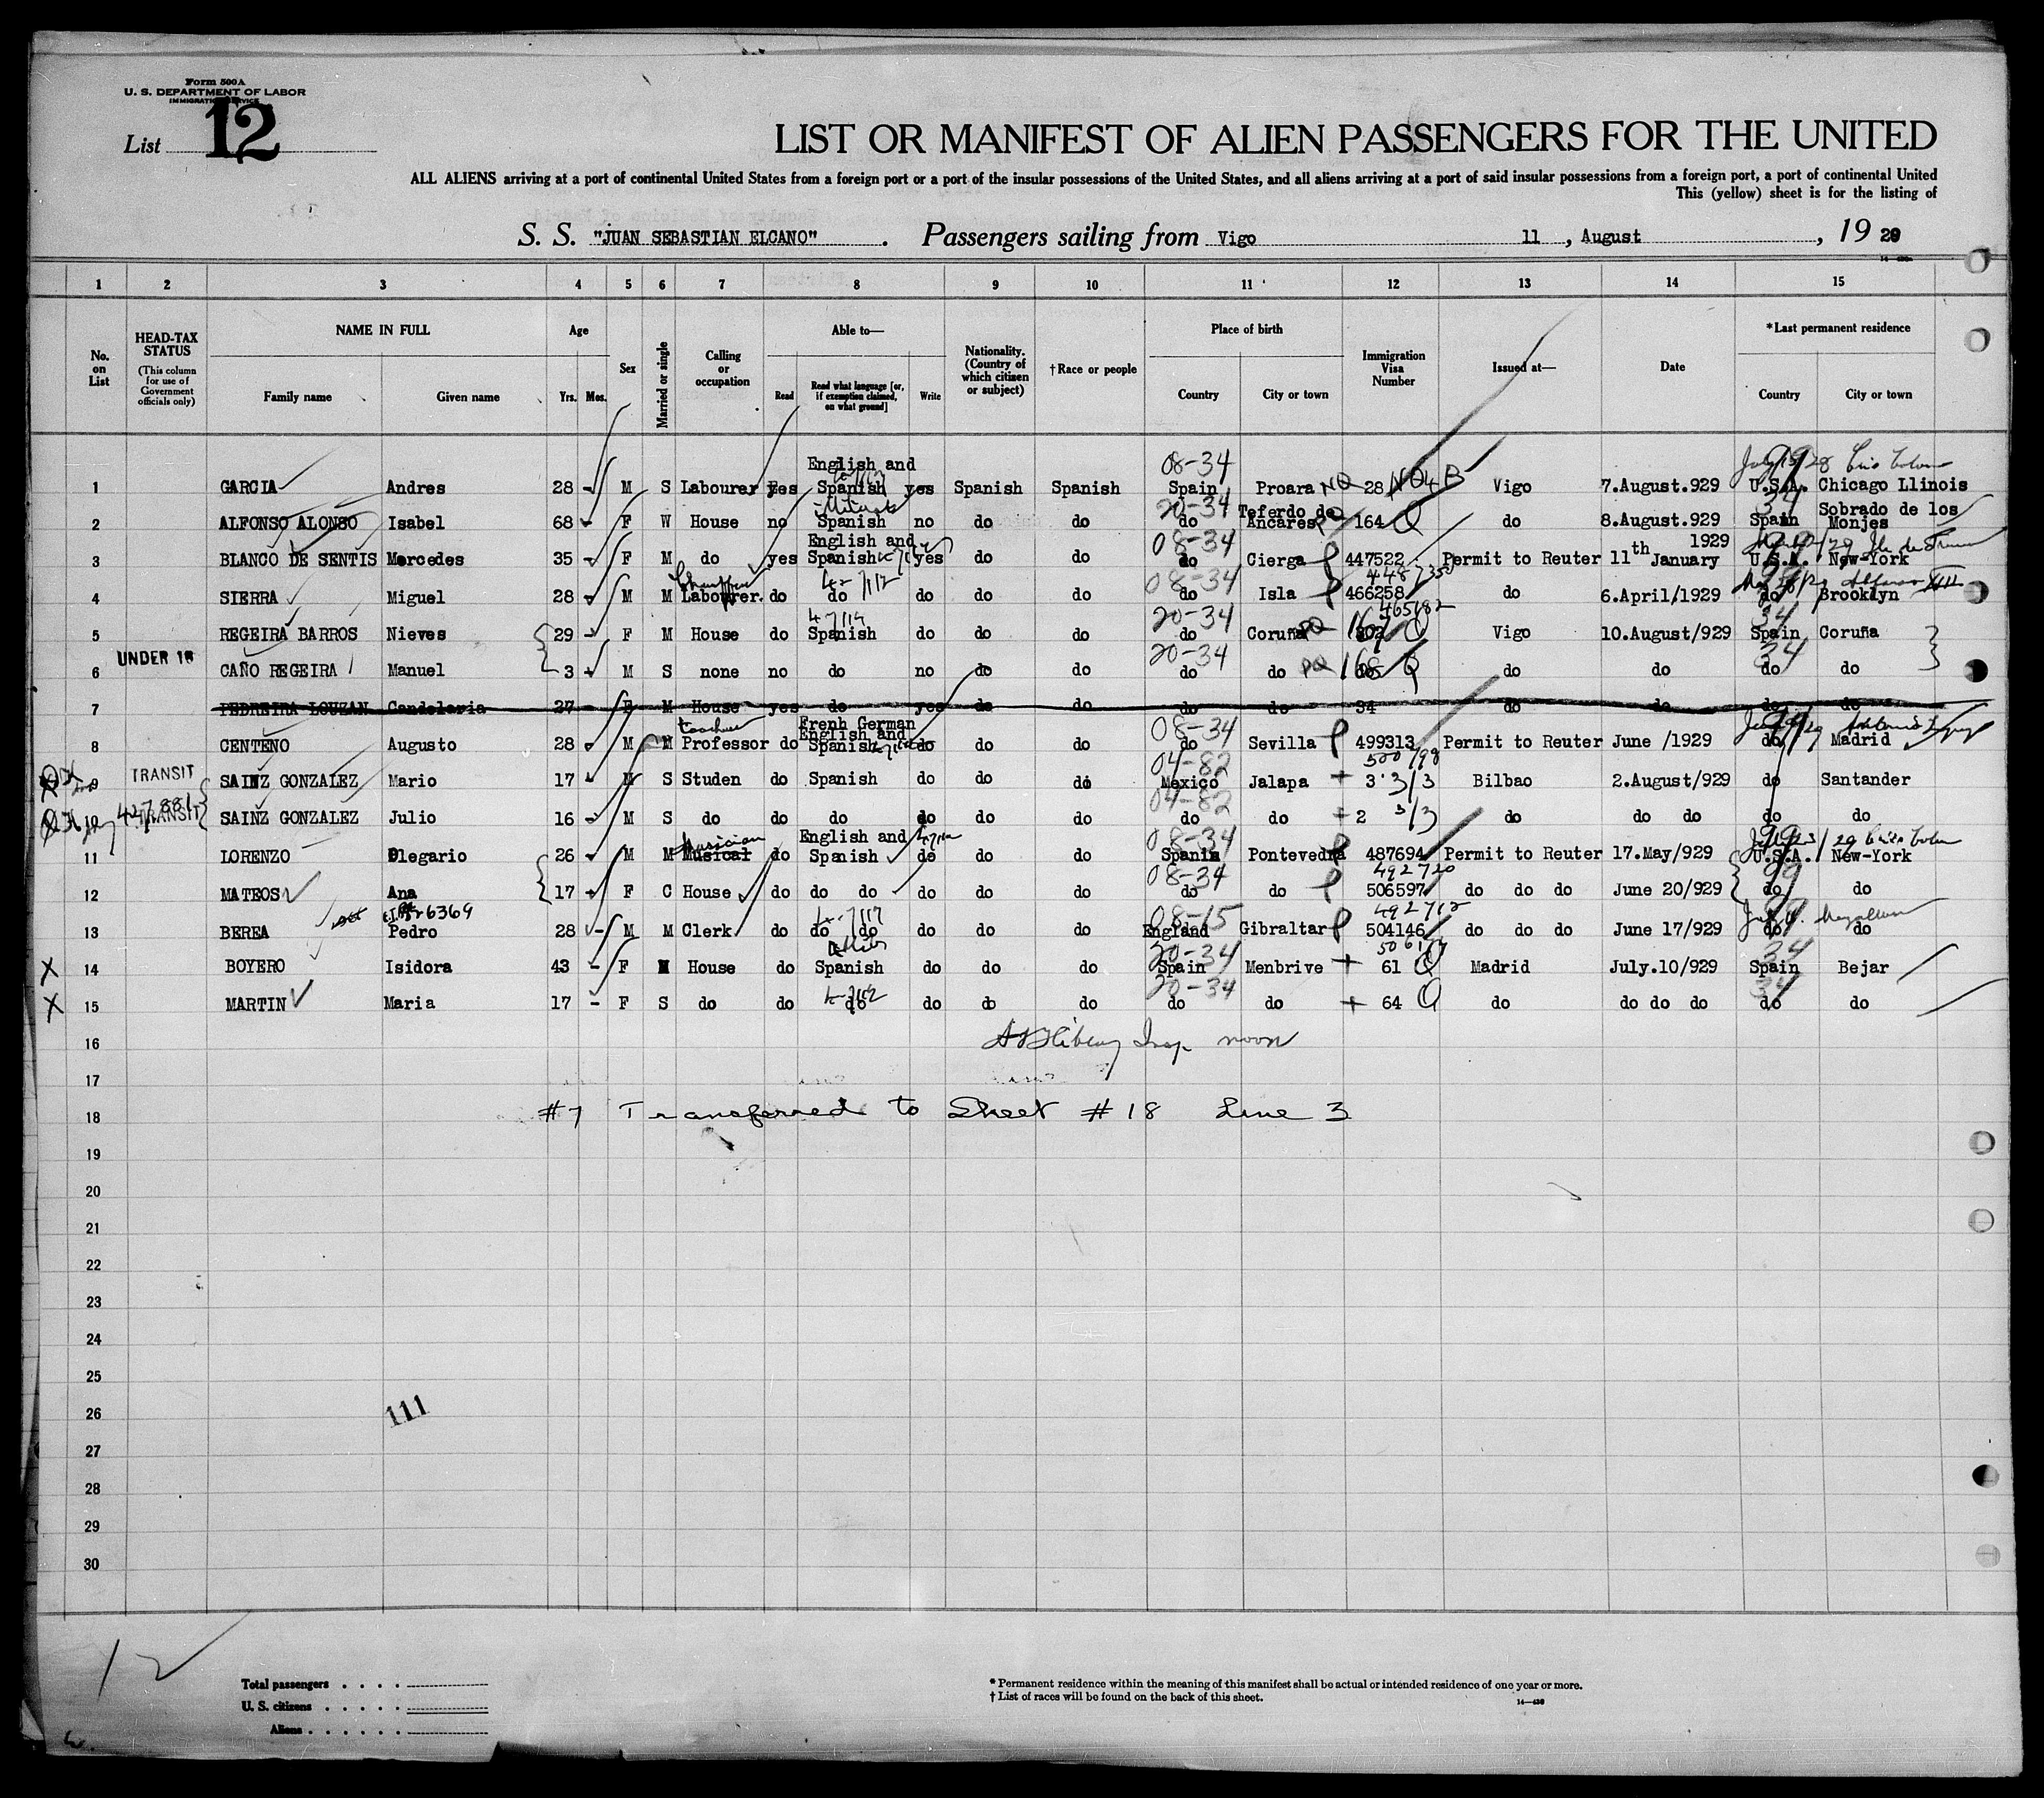 Form 500 A
U. S. DEPARTMENT OF LABOR
IMMIGRATION SERVICE
List 12
LIST OR MANIFEST OF ALIEN PASSENGERS FOR THE UNITED
ALL ALIENS arriving at a port of continental United States from a foreign port or a port of the insular possessions of the United States, and all aliens arriving at a port of said insular possessions from a foreign port, a port of continental United
This (yellow) sheet is for the listing of
S. S. "JUAN SEBASTIAN ELCANO" . Passengers sailing from Vigo 11 , August , 19 29
1 2 3 4 5 6 7 8 9 10 11 12 13 14 15
No. on List
HEAD-TAX STATUS (This column for use of Government officials only)
NAME IN FULL Family name Given name
Age Yrs. Mos.
Sex
Married or single
Calling or occupation
Able to— Read Read what language [or, if exemption claimed, on what ground] Write
Nationality. (Country of which citizen or subject)
† Race or people
Place of birth Country City or town
Immigration Visa Number
Issued at—
Date
*Last permanent residence Country City or town
1 GARCIA Andres 28 - M S Labourer yes English and Spanish yes Spanish Spanish 08-34 Spain Proara 28 Vigo 7.August.929 U.S.A. Chicago Llinois
2 ALFONSO ALONSO Isabel 68 - F W House no Spanish no do do 20-34 do Teferdo de Ancares 164 do 8.August.929 Spain Sobrado de los Monjes
3 BLANCO DE SENTIS Mercedes 35 - F M do yes English and Spanish yes do do 08-34 do Cierga 447522 Permit to Reuter 11th January 1929 U.S.A. New-York
4 SIERRA Miguel 28 - M M Chauffeur Labourer. do do do do do 08-34 do Isla 466258 do 6.April/1929 do Brooklyn
5 REGEIRA BARROS Nieves 29 - F M House do Spanish do do do 20-34 do Coruña 167 Vigo 10.August/929 Spain Coruña
UNDER 16
6 CAÑO REGEIRA Manuel 3 - M S none no do no do do 20-34 do do 168 do do do do
7 PEDREIRA LOUZAN Candeloria 27 - F M House yes do yes do do do do 34 do do do do
8 CENTENO Augusto 28 - M M teacher Professor do Frenh German English and Spanish do do do 08-34 do Sevilla 499313 Permit to Reuter June /1929 do Madrid
9 TRANSIT SAINZ GONZALEZ Mario 17 - M S Studen do Spanish do do do 04-82 Mexico Jalapa 3 Bilbao 2.August/929 do Santander
10 TRANSIT SAINZ GONZALEZ Julio 16 - M S do do do do do do 04-82 do do 2 do do do do do
11 LORENZO Olegario 26 - M M Musician Musical do English and Spanish do do do 08-34 Spain Pontevedra 487694 Permit to Reuter 17.May/929 U.S.A. New-York
492720
12 MATEOS Ana 17 - F C House do do do do do do 08-34 do do 506597 do do do June 20/929 do do
492712
13 BEREA Pedro 28 - M M Clerk do do do do do do 08-15 England Gibraltar 504146 do do do June 17/929 do do
14 BOYERO Isidora 43 - F M House do Spanish do do do 20-34 Spain Menbrive 61 Madrid July.10/929 Spain Bejar
15 MARTIN Maria 17 - F S do do do do do do 20-34 do do 64 do do do do do do
16
17
18 #7 Transferred to Sheet #18 Line 3
19
20
21
22
23
24
25
26 111
27
28
29
30
12
Total passengers
U. S. citizens
Aliens
* Permanent residence within the meaning of this manifest shall be actual or intended residence of one year or more.
† List of races will be found on the back of this sheet.